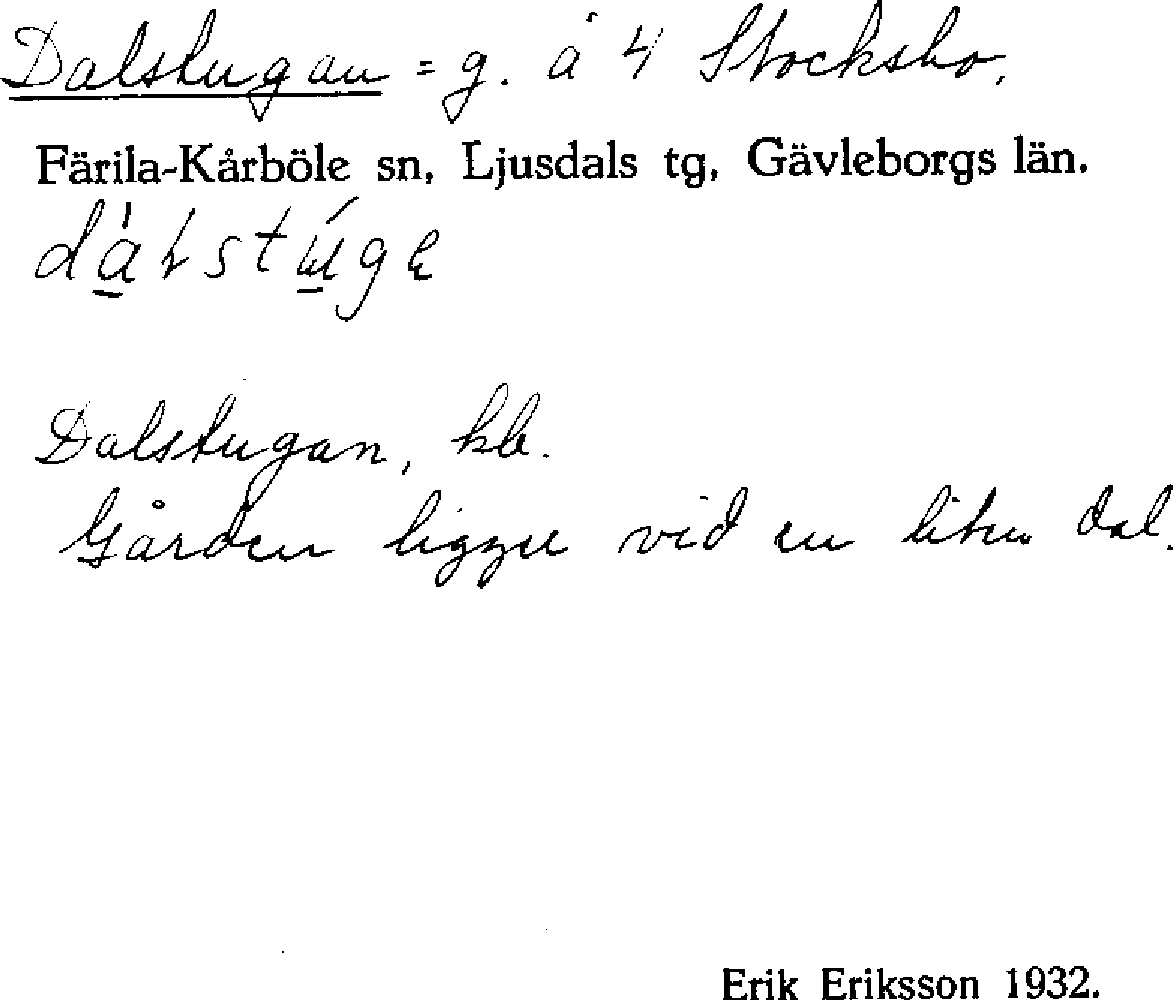 Dalstugan = g. å 4 Stocksbo.
Färila-Kårböle sn, Ljusdals tg, Gävleborgs län.
Dalstugan, kb.
Gården ligger vid en liten dal.
Erik Eriksson 1932.